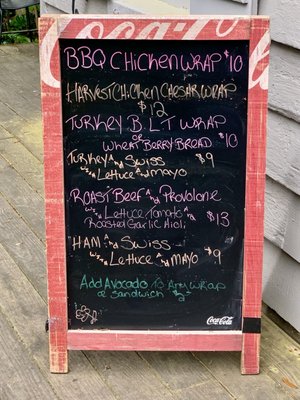 Coca-Cola
BBQ CHICKEN WRAP $10
HARVEST CHICKEN CAESAR WRAP
$12
TURKEY B.L.T WRAP
OR
WHEAT BERRY BREAD $10
TURKEY AND SWISS $9
WITH LETTUCE AND MAYO
ROAST BEEF AND PROVOLONE
WITH LETTUCE TOMATO AND
ROASTED GARLIC AIOLI $13
HAM AND SWISS
WITH LETTUCE AND MAYO $9
Add AVOCADO TO ANY WRAP
OR SANDWICH $2
Coca-Cola